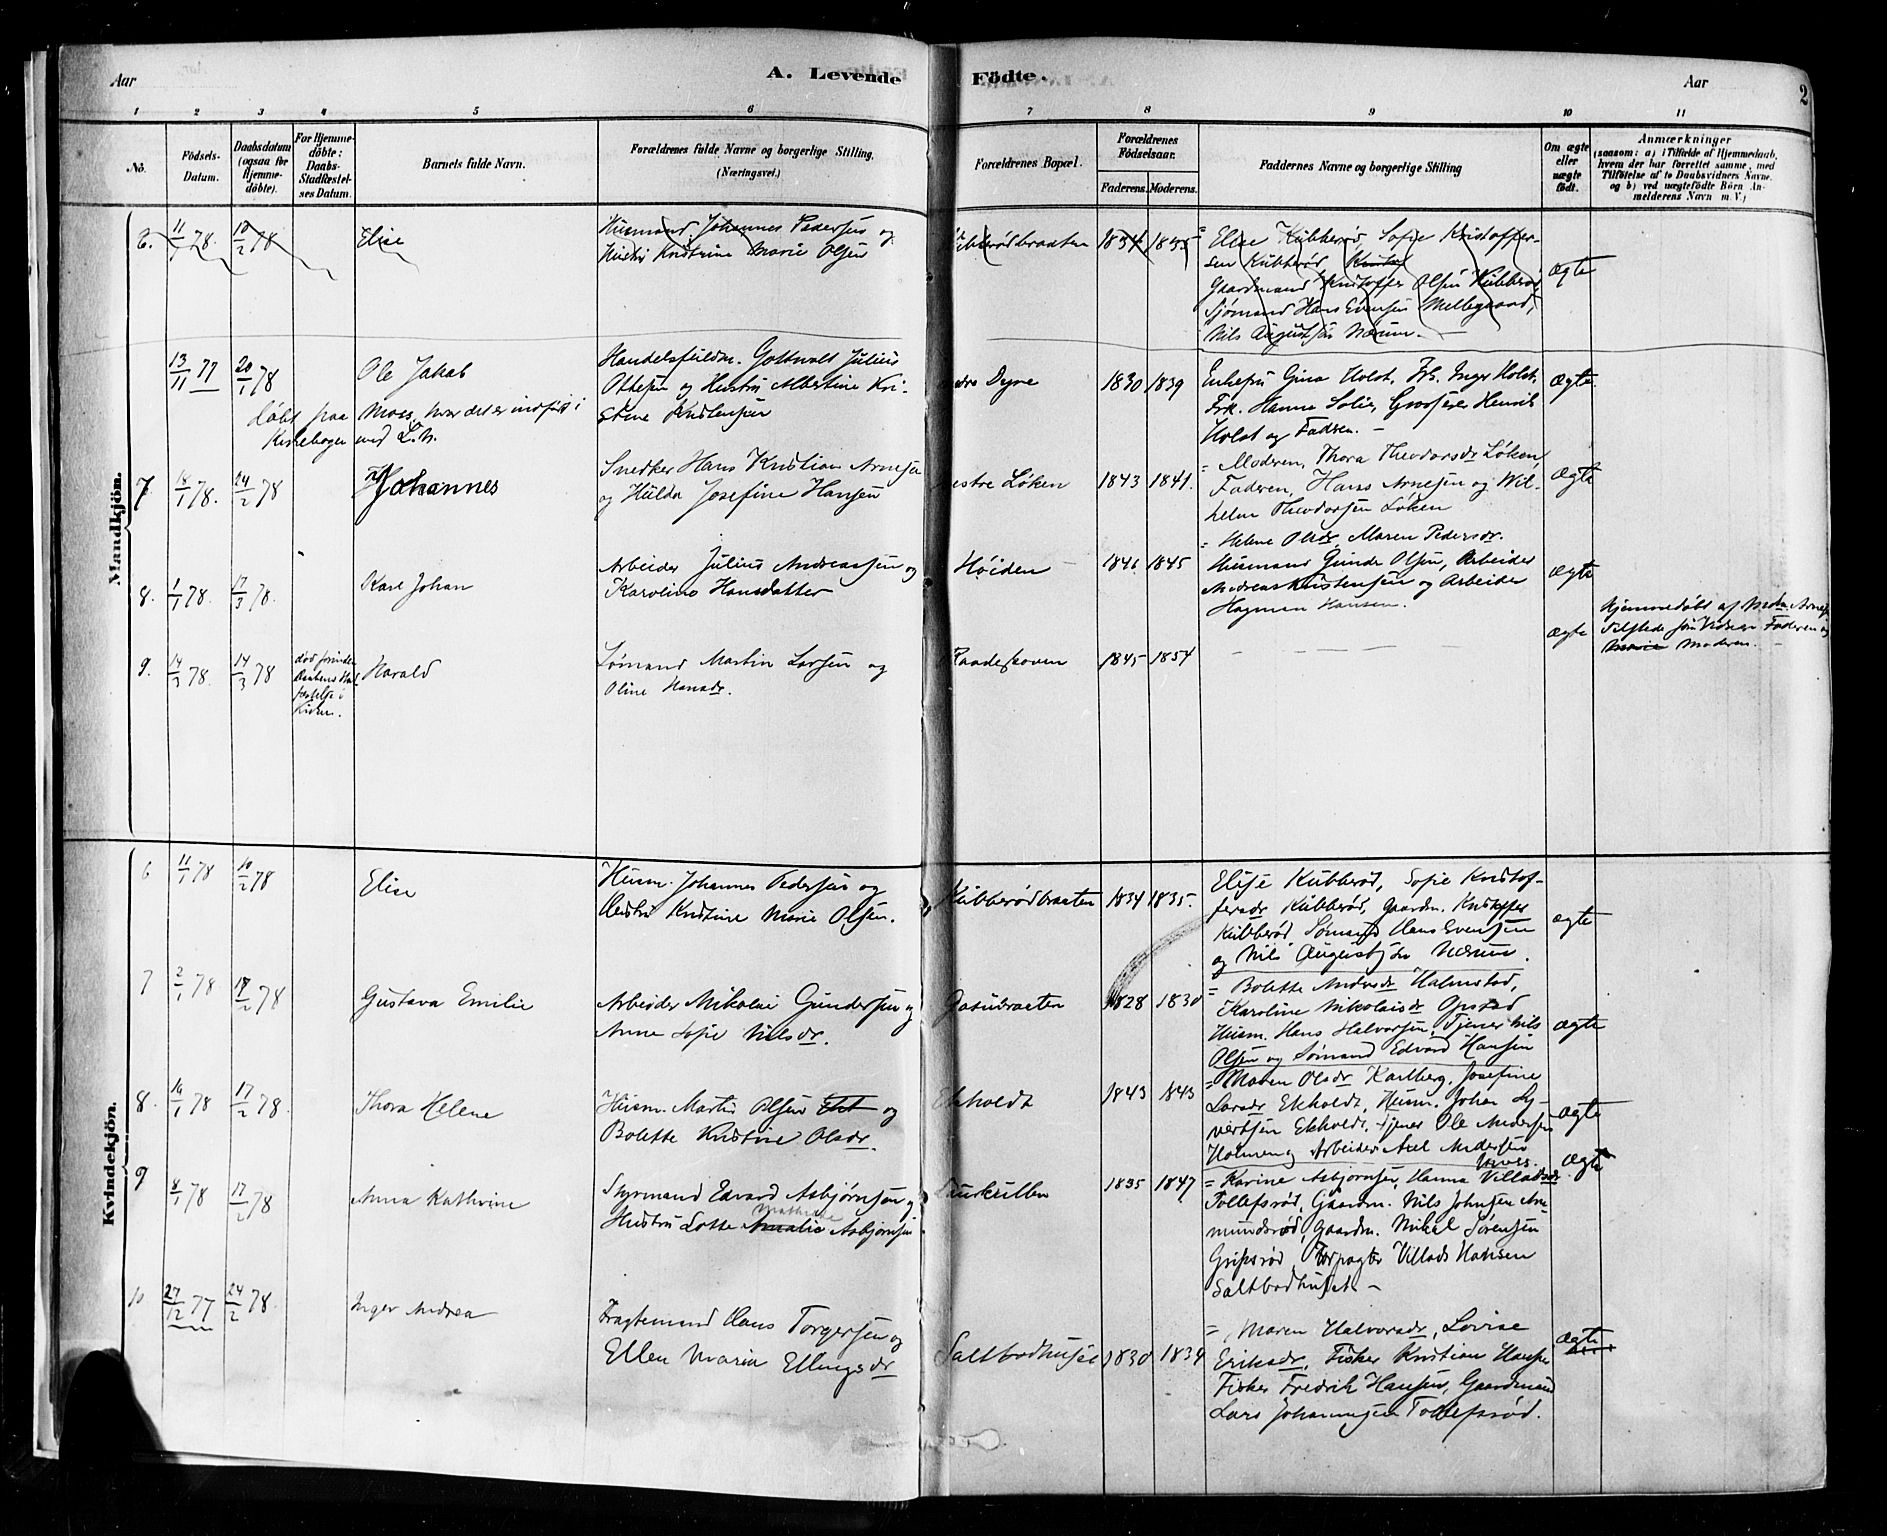 Aar
A. Levende
Födte.
Aar
2
1 2 3 4 5 6 7 8 9 10 11
No.
Födsels-
Datum.
Daabsdatum
(ogsaa for
Hjemme-
döbte).
For Hjemme-
döbte:
Daabs
Stadfæstel-
ses Datum.
Barnets fulde Navn.
Forældrenes fulde Navne og borgerlige Stilling.
(Næringsvei.)
Forældrenes Bopæl.
Forældrenes
Födselsaar.
Faderens. Moderens.
Faddernes Navne og borgerlige Stilling
Om ægte
eller
uægte
födt.
Anmærkninger
(saasom: a) i Tilfælde af Hjemmedaab,
hvem der har forrettet samme, med
Tilföielse af to Daabsvidners Navne.
og b) ved uægtefödte Börn An-
melderens Navn m. V.)
Mandkjön.
6. 11/1 78. 10/2 78 Elise
Husmand Johannes Pedersen og
Hustru Kristine Marie Olsen
1834 1835
Elise Kubberød, Sofie Kristoffer-
sen Kubberød
Gaardmand Kristoffer Olsen Kubberød
Sjømand Hans Evensen Mellegaard,
Nils Augustsen Nærum.
Ægte
13/11 77 20/1 78 Ole Jakob
døbt paa Moss, hvor det er indført i
Kirkebogen med L. N.
Handelsfuldm. Gottwalt Julius
Ottesen og Hustru Albertine Kri-
stine Kristensen
Dyre
1830 1839
Enkefru Gina Holst, Frk. Inger Holst,
Frk. Hanna Solie, Grosserer Henrik
Holst og Faderen.
Ægte
7 18/1 78. 24/2 78 Johannes
Snedker Hans Kristian Arnesen
og Hulda Josefine Hansen
Vestre Løken
1843 1841.
= Moderen, Thora Theodorsdr Løken,
Faderen, Hans Arnesen og Wil-
helm Theodorsen Løken
Ægte
8. 1/1 78. 17/3 78. Karl Johan
Arbeider Julius Andreassen og
Karoline Hansdatter
Høiden
1846 1845
= Helene Olsdr, Maren Pedersdr.
Husmand Gunder Olsen, Arbeider
Andreas Kristensen og Arbeider
Hagman Hansen.
Ægte
9. 14/3 78. 14/3 78 død forinden
Daabens Stad-
fæstelse i
Kirken.
Harald
Sømand Martin Larsen og
Oline Hansdr.
Raadeskoven
1845 1854
Ægte
Hjemmedøbt af Arnesen
Tilstede som Vidner Faderen og
Moderen.
Kvindekjön.
6 11/1 78 10/2 78
Elise
Husm. Johannes Pedersen og
Hustru Kristine Marie Olsen.
Kubberødbraaten 1834 1835.
Elise Kubberød, Sofie Kristof-
fersdr Kubberød, Gaardm. Kristoffer
Kubberød Sømand Hans Evensen
og Nils Augustsen Nærum.
Ægte
7 2/1 78 17/2 78
Gustava Emilie
Arbeider Mikolai Gundersen og
Anne Sofie Nilsdr.
1828 1830
= Bolette Andersdr Halmstad,
Karoline Nikolaisdr Opstad
Husm. Hans Halvorsen, Tjener Nils
Olsen og Sømand Edvard Hansen
Ægte
8. 10/1 78 17/2 78.
Thora Helene
Husm. Martin Olsen og
Bolette Kristine Olsdr.
Ekholdt
1843 1843
= Maren Olsdr Karlberg, Josefine
Larsdr Ekholdt, Husm. Johan Sy-
vertsen Ekholdt, Tjener Ole Andersen
Holmen og Arbeider Axel Andersen
Moss.
Ægte
9 8/1 78 17/2 78
Anna Kathrine
Styrmand Edvard Asbjørnsen og
Hustru Lotte Mathilde Amalie Asbjørnsen
1835 1847
= Karine Asbjørnsen, Hanna Villadsdr
Tollefsrød, Gaardm. Nils Johnsen Aa-
mundsrød, Gaardm. Mikal Sørensen
Gripsrød, Forpagter Villads Hansen
Saltbodhuset
Ægte
10 27/12 77 24/2 78.
Inger Andrea
Fragtemand Hans Torgersen og
Ellen Maria Ellingsdr
Saltbodhuset 1830 1834
= Maren Halvorsdr, Lovise
Eriksdr, Fisker Kristian Hansen
Fisker Fredrik Hansen, Gaardmand
Lars Johannesen Tollefsrød.
Ægte